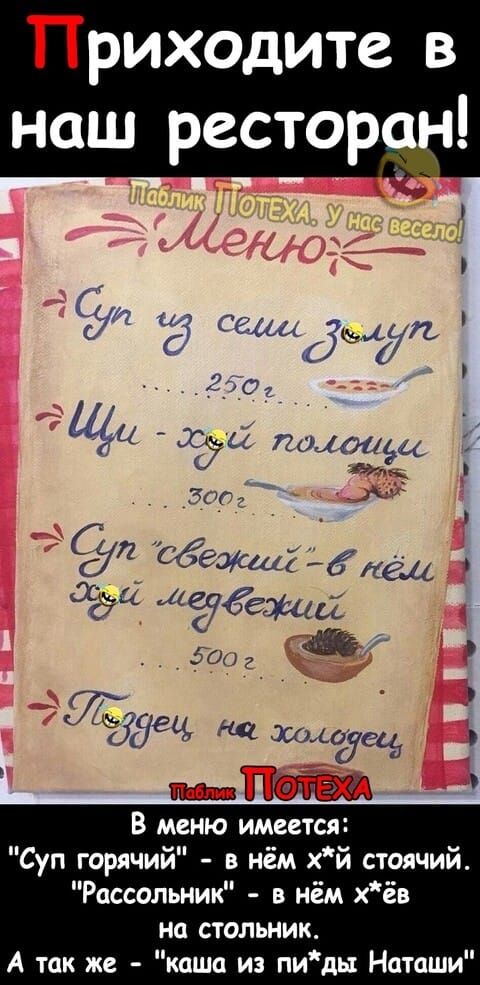 Приходите в
наш ресторан!
Паблик ПОТЕХА. У нас весело!
Меню
Суп из семи з😂луп
250г
Щи - х😂й полощи
300г
Суп "свежий" - в нём
х😂й медвежий
500г
П😂здец на холодец
Паблик ПОТЕХА
В меню имеется:
"Суп горячий" - в нём х*й стоячий.
"Рассольник" - в нём х*ёв
на стольник.
А так же - "каша из пи*ды Наташи"